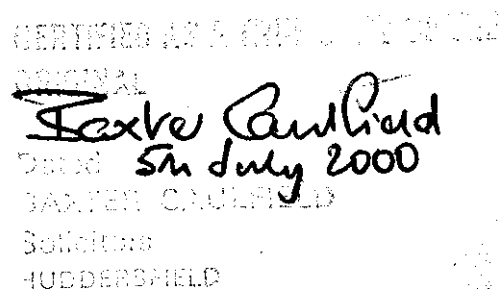 CERTIFIED AS A
ORIGINAL
Baxter Caulfield
Dated 5th July 2000
BAXTER CAULFIELD
Solicitors
HUDDERSFIELD